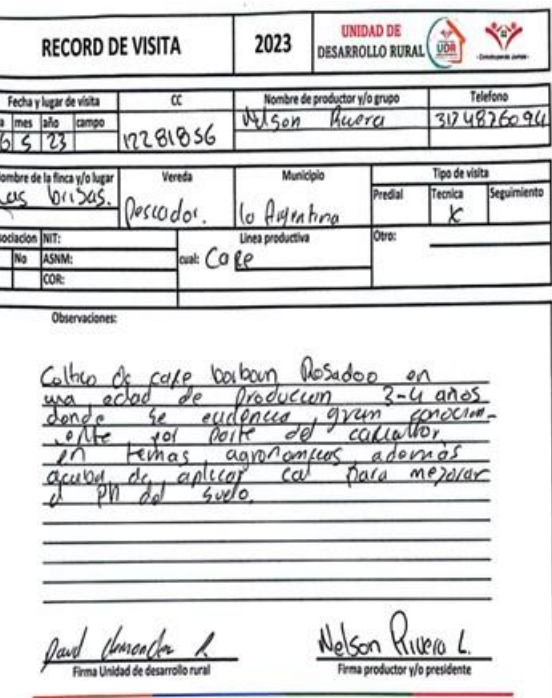 RECORD DE VISITA
2023
UNIDAD DE
DESARROLLO RURAL
UDR
- Construyendo Juntos -
Fecha y lugar de visita
CC
Nombre de productor y/o grupo
Telefono
a mes año campo
6 5 23
12281856
Nelson Rivera
3174876094
ombre de la finca y/o lugar
Vereda
Municipio
Tipo de visita
Predial
Tecnica
Seguimiento
Las brisas.
Pescador.
la Argentina
X
sociacion
NIT:
Linea productiva
Otro:
No
ASNM:
cual: Cafe
COR:
Observaciones:
Coltivo de cafe borboun Rosadoo en
una edad de Produccion 3-4 años
donde se evidencia gran conocim-
ente por parte del caficultor
en temas agronomicos además
acaba de aplicar cal para mejorar
el PH del suelo.
Nelson Rivera L.
Firma Unidad de desarrollo rural
Firma productor y/o presidente